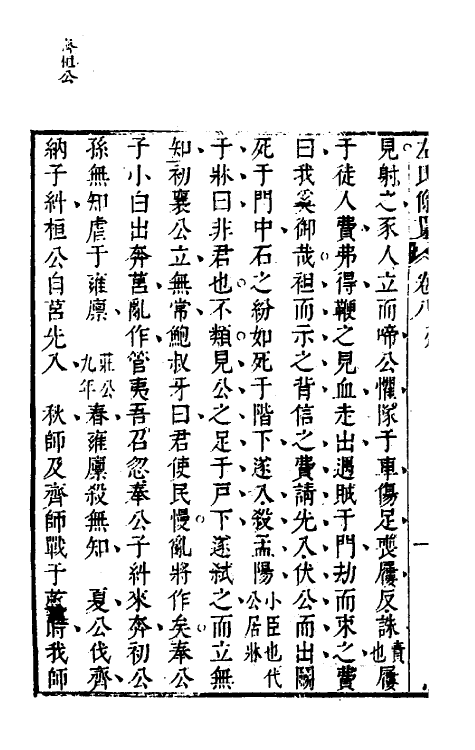 左氏條貫 卷八 齊 一
見射之豕人立而啼公懼隊于車傷足喪屨反誅責也屨
于徒人費弗得鞭之見血走出遇賊于門劫而束之費
曰我奚御哉袒而示之背信之費請先入伏公而出鬭
死于門中石之紛如死于階下遂入殺孟陽小臣也代公居牀
于牀曰非君也不類見公之足于戶下遂弑之而立無
知初襄公立無常鮑叔牙曰君使民慢亂將作矣奉公
子小白出奔莒亂作管夷吾召忽奉公子糾來奔初公
孫無知虐于雍廩 莊公九年春雍廩殺無知 夏公伐齊
齊桓公
納子糾桓公自莒先入 秋師及齊師戰于乾時我師